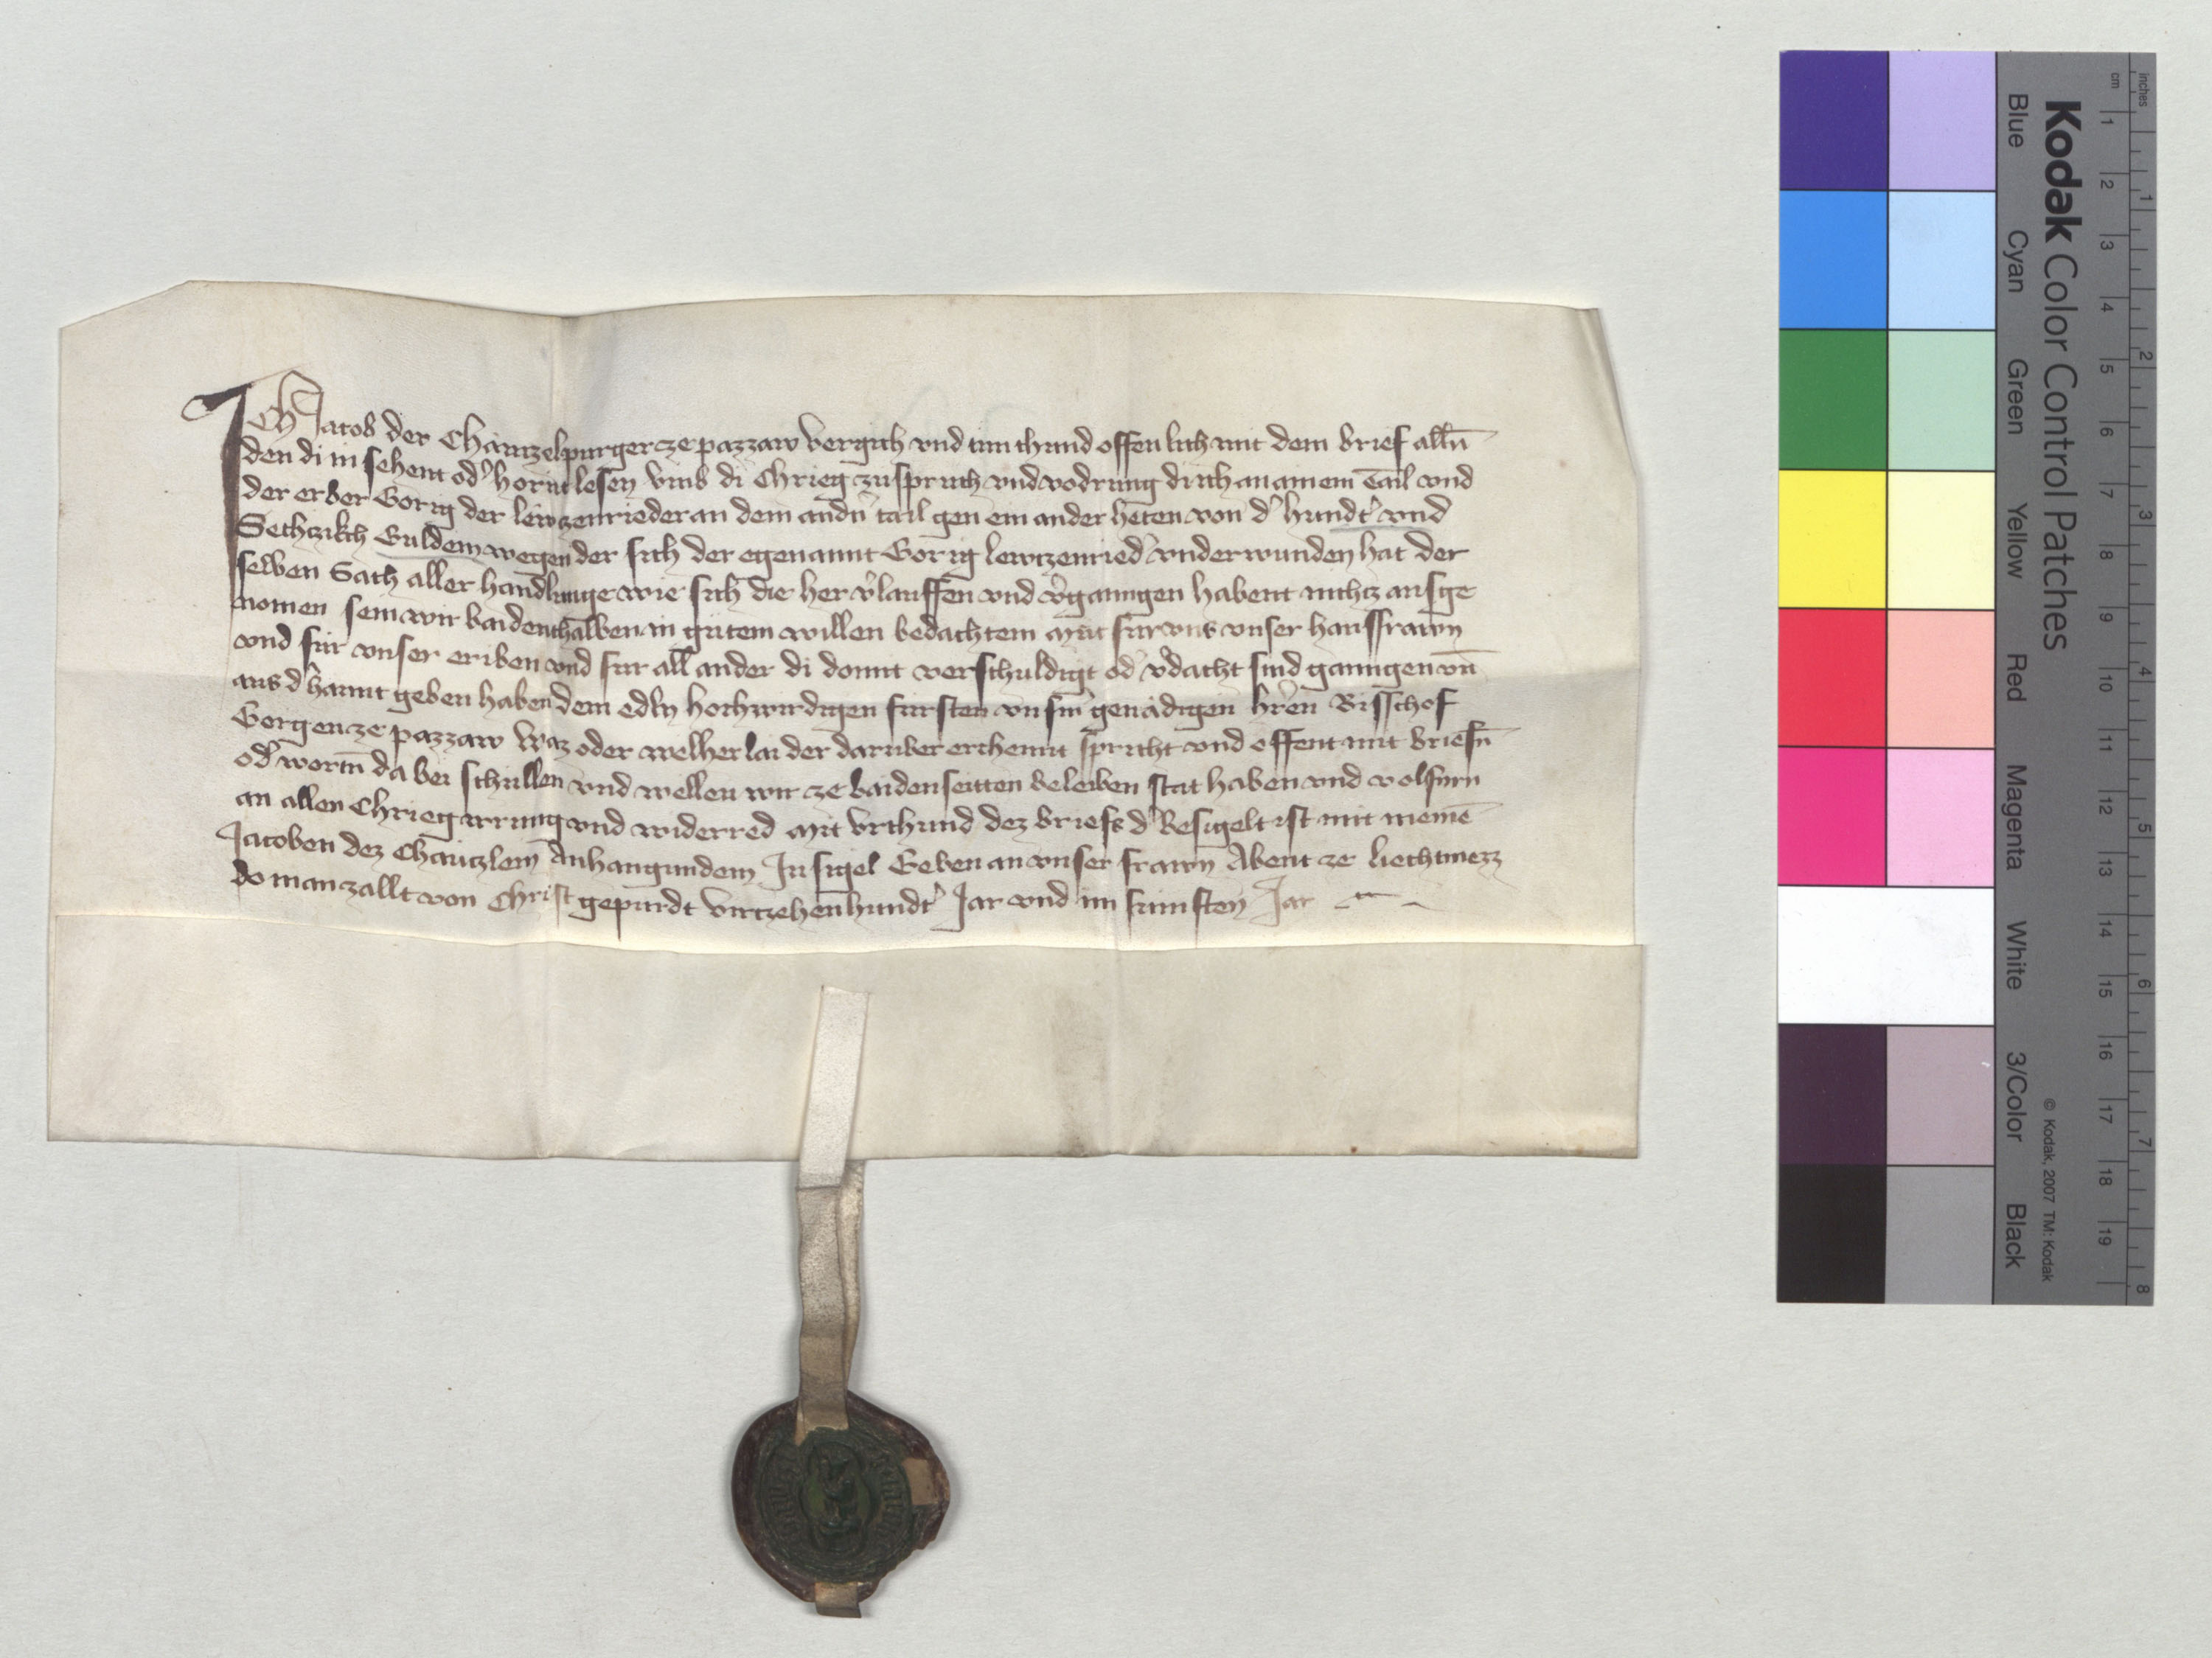 ICh Jacob der Chäntzelpurger ze pazzaw vergich vnd tun chund offenlich mit dem brief alln̄
den di in sehent od' hörnt lesen vmb di Chrieg zuspruch vnd vodrung di ich an ainem Tail vnd
der erber Görig der lewtzenrieder an dem andn̄ tail gen ein ander heten von d' hundt' vnd
Sechtzikch Guldein wegen der sich der egenannt Görig lewtzenried' vnderwunden hat der
selben Sach aller handlunge wie sich die her v'lauffen vnd v'gangen habent nichtz ausge
nomen sein wir baidenthalben in gutem willen bedachtem mut fur vns vnser hausfrawn
vnd fur vnser eriben vnd fur all ander di domit verschuldigt od' v'dacht sind gangen vn̄
aus d' hannt geben haben dem edln hochwirdigen fursten vnsm̄ genädigen hr̄en Bisschof
Gorgen ze pazzaw waz oder welherlai der daruber erchennt spricht vnd offent mit briefn̄
od' wortn̄ da bei schullen vnd wellen wir ze baiden seitten beleiben stat haben vnd volfurn
an allen Chrieg irrung vnd widerred Mit vrchund dez briefs d' Besigelt ist mit meinē
Jacoben dez Chantzlein Anhangundem Insigel Geben an vnser frawn Abent ze liechtmezz
do man zallt von Christ gepurdt virtzehenhundt' Jar vnd im funften Jar
Kodak Color Control Patches
© Kodak, 2007 TM: Kodak
inches
cm
1 2 3 4 5 6 7 8 9 10 11 12 13 14 15 16 17 18 19
1 2 3 4 5 6 7 8
Blue Cyan Green Yellow Red Magenta White 3/Color Black